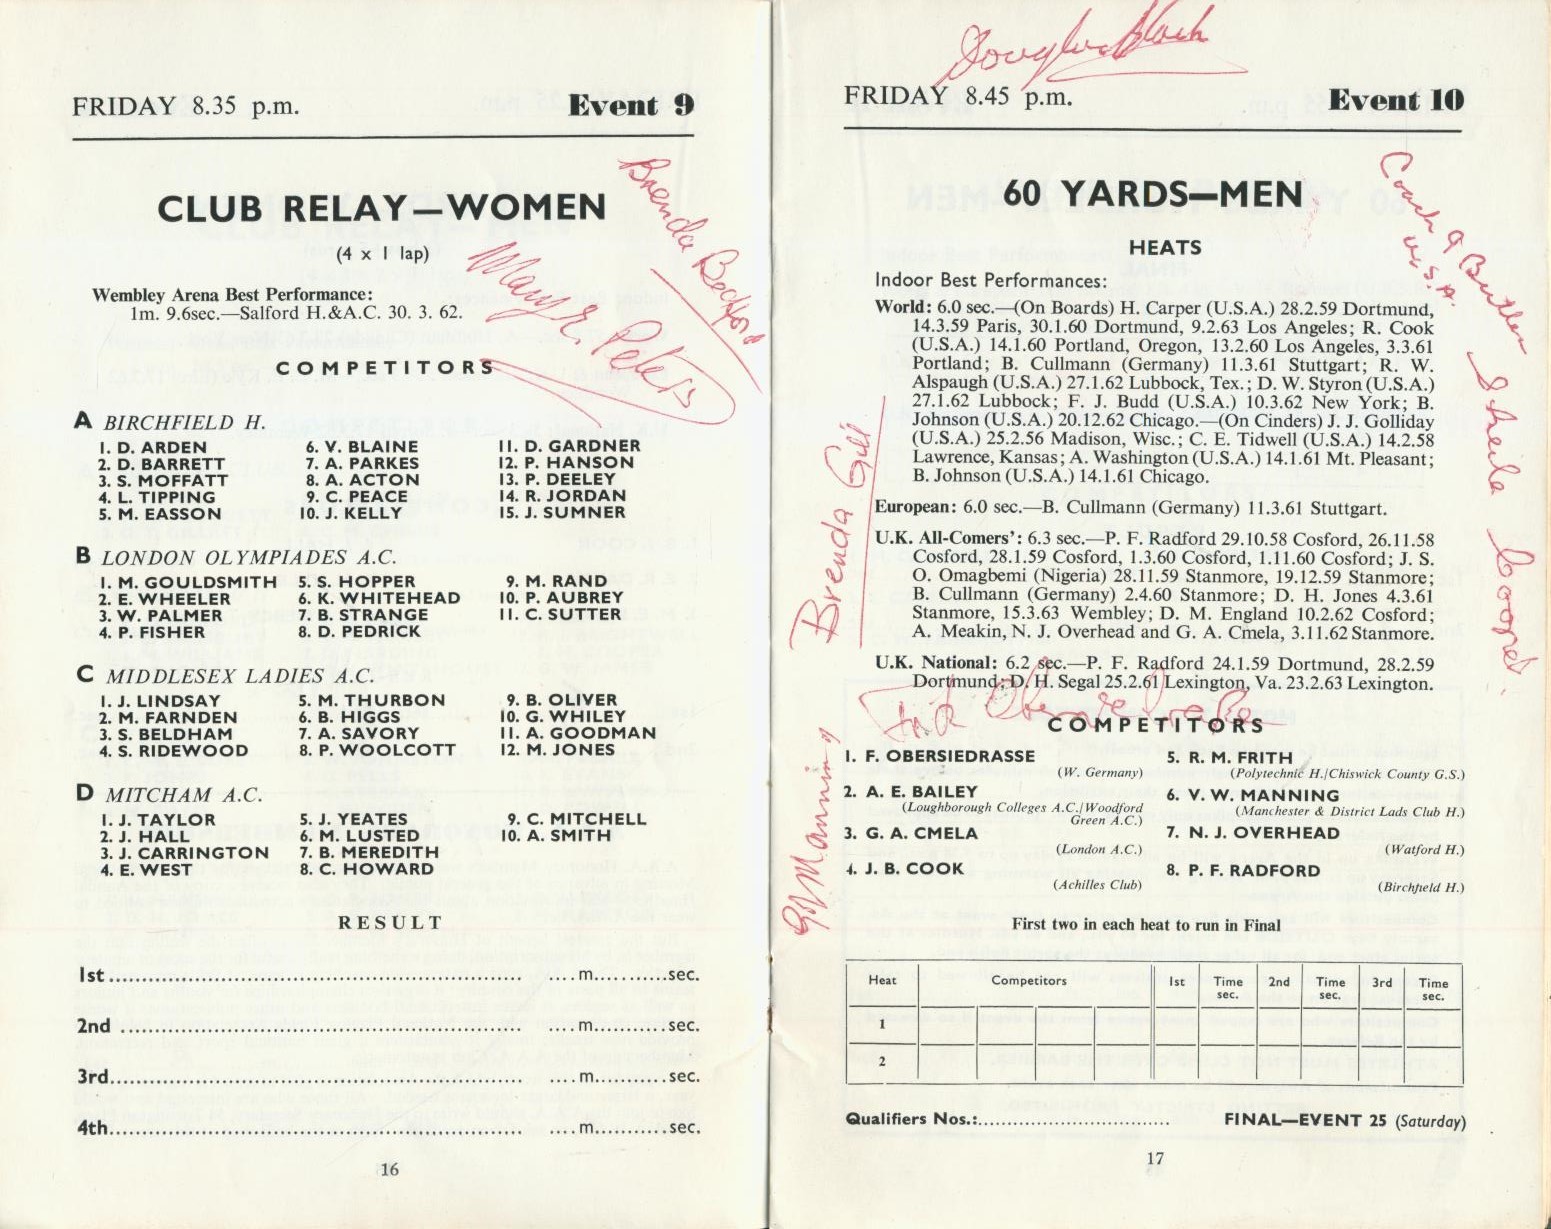 FRIDAY 8.35 p.m. Event 9
CLUB RELAY—WOMEN
(4 x 1 lap)
Brenda Bedford
Mary E. Peters
Wembley Arena Best Performance:
1m. 9.6sec.—Salford H.&A.C. 30. 3. 62.
COMPETITORS
A BIRCHFIELD H.
1. D. ARDEN 6. V. BLAINE 11. D. GARDNER
2. D. BARRETT 7. A. PARKES 12. P. HANSON
3. S. MOFFATT 8. A. ACTON 13. P. DEELEY
4. L. TIPPING 9. C. PEACE 14. R. JORDAN
5. M. EASSON 10. J. KELLY 15. J. SUMNER
B LONDON OLYMPIADES A.C.
1. M. GOULDSMITH 5. S. HOPPER 9. M. RAND
2. E. WHEELER 6. K. WHITEHEAD 10. P. AUBREY
3. W. PALMER 7. B. STRANGE 11. C. SUTTER
4. P. FISHER 8. D. PEDRICK
C MIDDLESEX LADIES A.C.
1. J. LINDSAY 5. M. THURBON 9. B. OLIVER
2. M. FARNDEN 6. B. HIGGS 10. G. WHILEY
3. S. BELDHAM 7. A. SAVORY 11. A. GOODMAN
4. S. RIDEWOOD 8. P. WOOLCOTT 12. M. JONES
D MITCHAM A.C.
1. J. TAYLOR 5. J. YEATES 9. C. MITCHELL
2. J. HALL 6. M. LUSTED 10. A. SMITH
3. J. CARRINGTON 7. B. MEREDITH
4. E. WEST 8. C. HOWARD
RESULT
1st.......... ....m..........sec.
2nd .......... ....m..........sec.
3rd.......... ....m..........sec.
4th.......... ....m..........sec.
16
FRIDAY 8.45 p.m. Event 10
60 YARDS—MEN
HEATS
Coach G Butler
U.S.A.
Sheila Cooper
Brenda Gill
Manning
Indoor Best Performances:
World: 6.0 sec.—(On Boards) H. Carper (U.S.A.) 28.2.59 Dortmund,
14.3.59 Paris, 30.1.60 Dortmund, 9.2.63 Los Angeles; R. Cook
(U.S.A.) 14.1.60 Portland, Oregon, 13.2.60 Los Angeles, 3.3.61
Portland; B. Cullmann (Germany) 11.3.61 Stuttgart; R. W.
Alspaugh (U.S.A.) 27.1.62 Lubbock, Tex.; D. W. Styron (U.S.A.)
27.1.62 Lubbock; F. J. Budd (U.S.A.) 10.3.62 New York; B.
Johnson (U.S.A.) 20.12.62 Chicago.—(On Cinders) J. J. Golliday
(U.S.A.) 25.2.56 Madison, Wisc.; C. E. Tidwell (U.S.A.) 14.2.58
Lawrence, Kansas; A. Washington (U.S.A.) 14.1.61 Mt. Pleasant;
B. Johnson (U.S.A.) 14.1.61 Chicago.
European: 6.0 sec.—B. Cullmann (Germany) 11.3.61 Stuttgart.
U.K. All-Comers': 6.3 sec.—P. F. Radford 29.10.58 Cosford, 26.11.58
Cosford, 28.1.59 Cosford, 1.3.60 Cosford, 1.11.60 Cosford; J. S.
O. Omagbemi (Nigeria) 28.11.59 Stanmore, 19.12.59 Stanmore;
B. Cullmann (Germany) 2.4.60 Stanmore; D. H. Jones 4.3.61
Stanmore, 15.3.63 Wembley; D. M. England 10.2.62 Cosford;
A. Meakin, N. J. Overhead and G. A. Cmela, 3.11.62 Stanmore.
U.K. National: 6.2 sec.—P. F. Radford 24.1.59 Dortmund, 28.2.59
Dortmund; D. H. Segal 25.2.61 Lexington, Va. 23.2.63 Lexington.
COMPETITORS
1. F. OBERSIEDRASSE 5. R. M. FRITH
(W. Germany) (Polytechnic H./Chiswick County G.S.)
2. A. E. BAILEY 6. V. W. MANNING
(Loughborough Colleges A.C./Woodford (Manchester & District Lads Club H.)
Green A.C.)
3. G. A. CMELA 7. N. J. OVERHEAD
(London A.C.) (Watford H.)
4. J. B. COOK 8. P. F. RADFORD
(Achilles Club) (Birchfield H.)
First two in each heat to run in Final
Heat Competitors 1st Time sec. 2nd Time sec. 3rd Time sec.
1
2
Qualifiers Nos.:.............................. FINAL—EVENT 25 (Saturday)
17